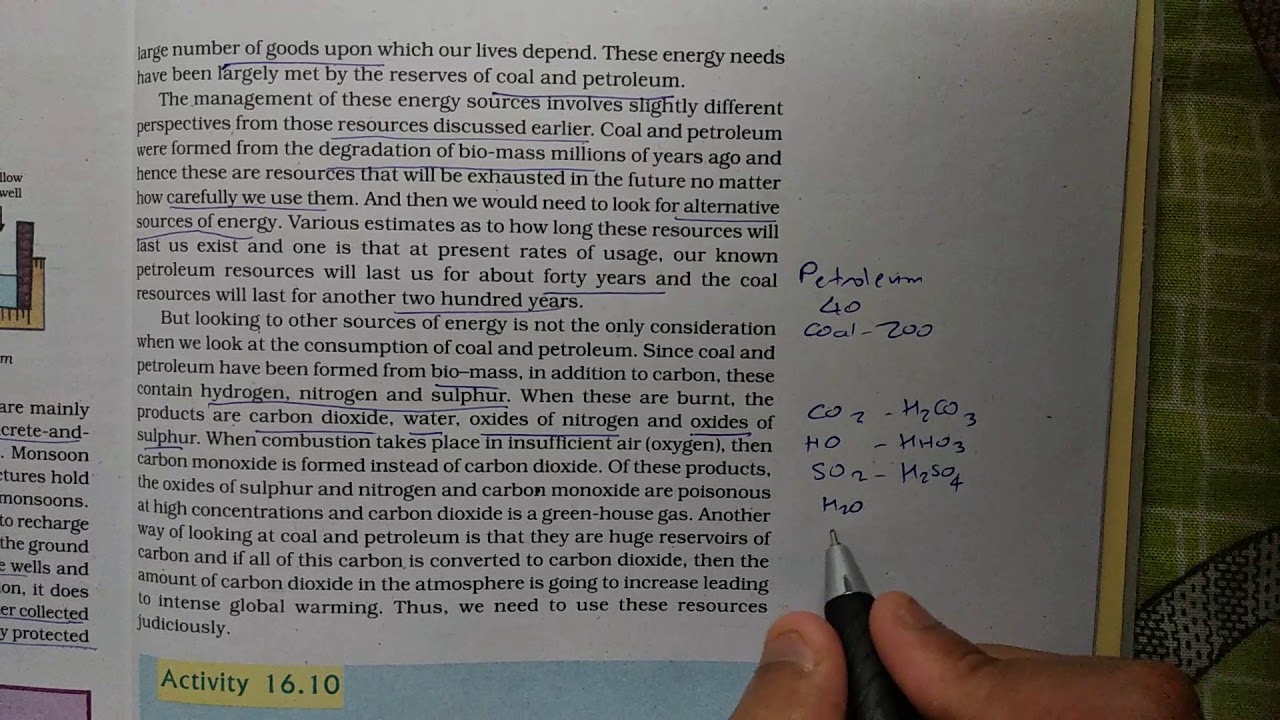 large number of goods upon which our lives depend. These energy needs
have been largely met by the reserves of coal and petroleum.
The management of these energy sources involves slightly different
perspectives from those resources discussed earlier. Coal and petroleum
were formed from the degradation of bio-mass millions of years ago and
hence these are resources that will be exhausted in the future no matter
how carefully we use them. And then we would need to look for alternative
sources of energy. Various estimates as to how long these resources will
last us exist and one is that at present rates of usage, our known
petroleum resources will last us for about forty years and the coal
resources will last for another two hundred years.
But looking to other sources of energy is not the only consideration
when we look at the consumption of coal and petroleum. Since coal and
petroleum have been formed from bio–mass, in addition to carbon, these
contain hydrogen, nitrogen and sulphur. When these are burnt, the
products are carbon dioxide, water, oxides of nitrogen and oxides of
sulphur. When combustion takes place in insufficient air (oxygen), then
carbon monoxide is formed instead of carbon dioxide. Of these products,
the oxides of sulphur and nitrogen and carbon monoxide are poisonous
at high concentrations and carbon dioxide is a green-house gas. Another
way of looking at coal and petroleum is that they are huge reservoirs of
carbon and if all of this carbon is converted to carbon dioxide, then the
amount of carbon dioxide in the atmosphere is going to increase leading
to intense global warming. Thus, we need to use these resources
judiciously.
Activity 16.10
Petroleum
40
Coal - 200
CO2 - H2CO3
HO - HHO3
SO2 - H2SO4
H2O
llow
well
m
are mainly
crete-and-
. Monsoon
ctures hold
monsoons.
to recharge
the ground
e wells and
ion, it does
er collected
y protected